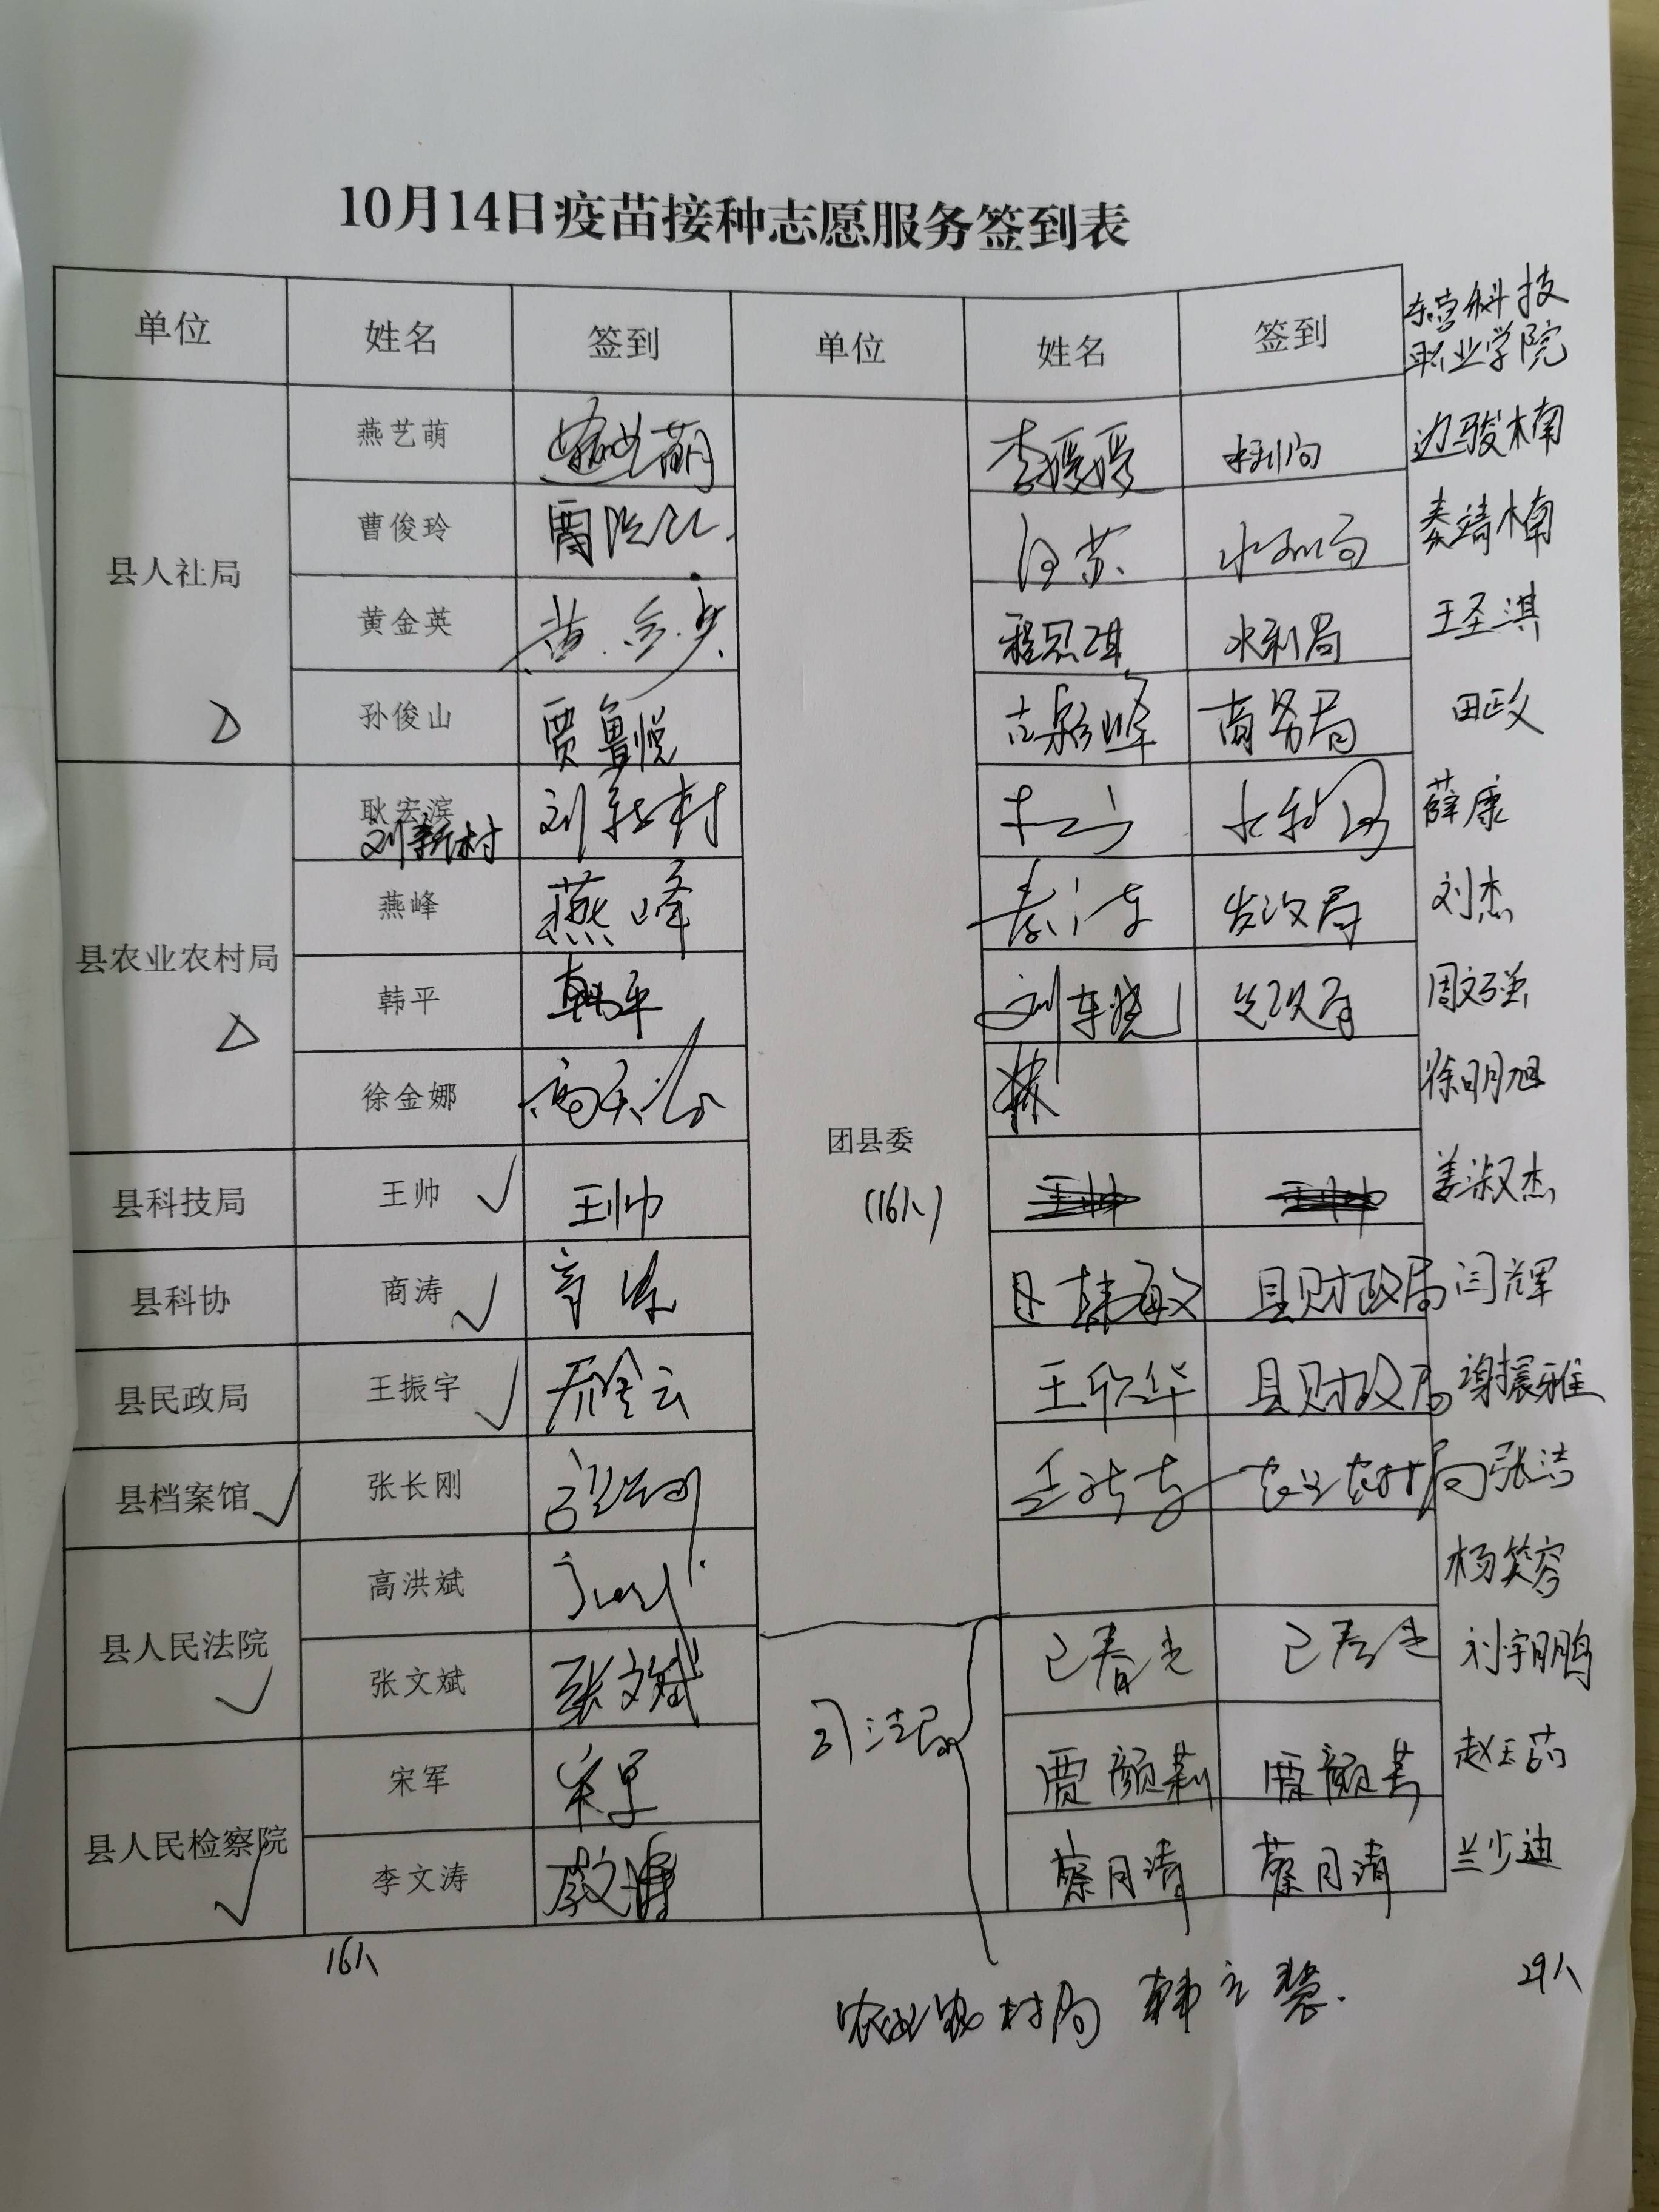 10月14日疫苗接种志愿服务签到表
单位 姓名 签到 单位 姓名 签到
东营科技
职业学院
县人社局
燕艺萌 燕艺萌
曹俊玲
黄金英 黄金英
孙俊山 贾鲁悦
县农业农村局
耿宏滨 刘新村
刘新村
燕峰 燕峰
韩平 韩平
徐金娜
县科技局 王帅 王帅
县科协 商涛
县民政局 王振宇
县档案馆 张长刚
县人民法院
高洪斌
张文斌 张文斌
县人民检察院
宋军 宋军
李文涛 李文涛
16人
团县委
(16人)
李媛媛 水利局
水利局
程思琪 水利局
商务局
水利局
发改局
刘车晓 发改局
韩敏 县财政局
王欣华 县财政局
农业农村局
司法局
已春光 已春光
贾颜莉 贾颜莉
蔡月清 蔡月清
边骏楠
秦靖楠
王圣淇
田政
薛康
刘杰
周文强
徐明旭
姜淑杰
闫辉
谢振雅
张洁
杨笑容
刘宇鹏
赵玉茹
兰少迪
29人
农业农村局 韩立慧